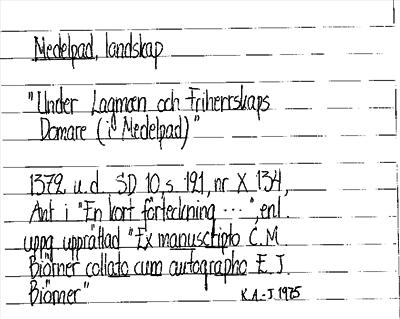 Medelpad, landskap
"Under Lagmæn och Friherrskaps
Domare (i Medelpad)"
1372 u.d. SD 10, s 191, nr X 134,
Ant i "En kort förteckning ...", enl.
uppg. upprättad "Ex manuscripto C.M.
Biörner collato cum autographo E.J.
Biörner"
K.A.-J. 1975